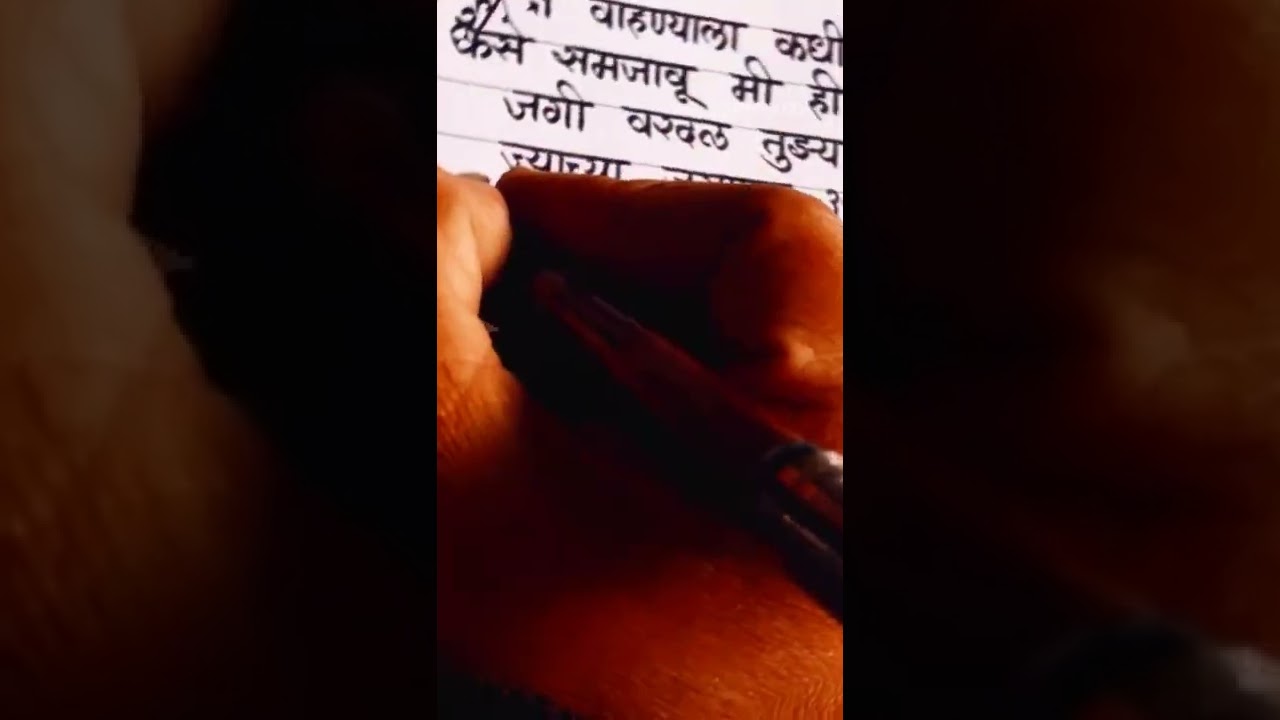 वाहण्याला कधी
कैसे समजावू मी ही
जगी वरदल तुझ्य
ज्याच्या